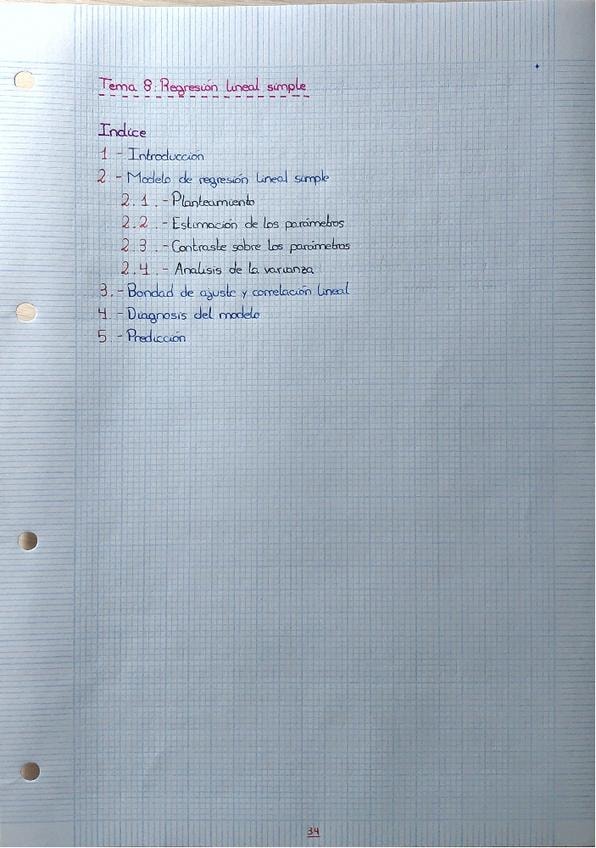 Tema 8: Regresión lineal simple
Indice
1 - Introducción
2 - Modelo de regresión lineal simple
2.1.- Planteamiento
2.2.- Estimación de los parámetros
2.3.- Contraste sobre los parámetros
2.4.- Analisis de la varianza
3.- Bondad de ajuste y correlación lineal
4 - Diagnosis del modelo
5 - Predicción
34